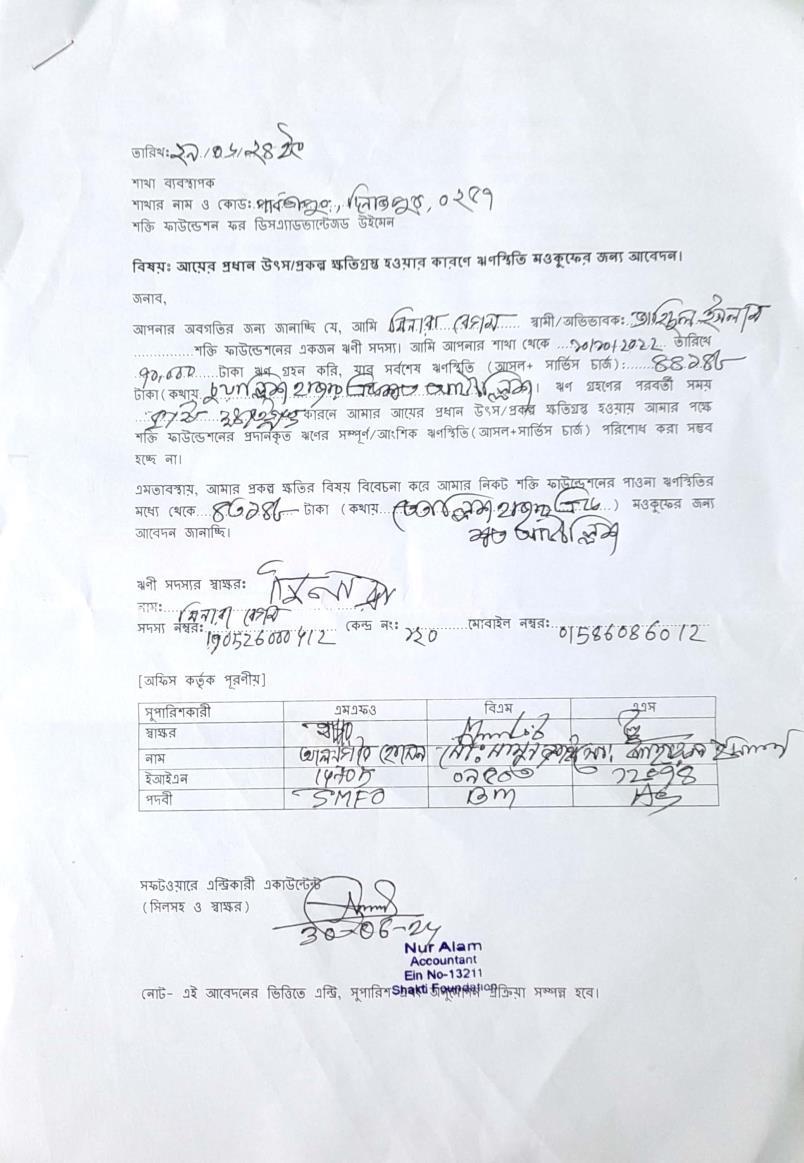 তারিখঃ ২৯/০৬/২৪ ইং
শাখা ব্যবস্থাপক
শাখার নাম ও কোডঃ পার্বতীপুর, দিনাজপুর, ০২৫৭
শক্তি ফাউন্ডেশন ফর ডিসএ্যাডভান্টেজড উইমেন
বিষয়ঃ আয়ের প্রধান উৎস/প্রকল্প ক্ষতিগ্রস্থ হওয়ার কারণে ঋণস্থিতি মওকুফের জন্য আবেদন।
জনাব,
আপনার অবগতির জন্য জানাচ্ছি যে, আমি মিনারা বেগম স্বামী/অভিভাবক: ইসলাম
শক্তি ফাউন্ডেশনের একজন ঋনী সদস্য। আমি আপনার শাখা থেকে ২০/১০/2022 তারিখে
৭০,০০০ টাকা ঋণ গ্রহন করি, যার সর্বশেষ ঋণস্থিতি (আসল+ সার্ভিস চার্জ): ৪৪৩৪৮
টাকা (কথায় চুয়াল্লিশ হাজার তিনশত আটচল্লিশ। ঋণ গ্রহণের পরবর্তী সময়
কারনে আমার আয়ের প্রধান উৎস/প্রকল্প ক্ষতিগ্রস্থ হওয়ায় আমার পক্ষে
শক্তি ফাউন্ডেশনের প্রদানকৃত ঋণের সম্পূর্ণ/আংশিক ঋণস্থিতি (আসল+সার্ভিস চার্জ) পরিশোধ করা সম্ভব
হচ্ছে না।
এমতাবস্থায়, আমার প্রকল্প ক্ষতির বিষয় বিবেচনা করে আমার নিকট শক্তি ফাউন্ডেশনের পাওনা ঋণস্থিতির
মধ্যে থেকে ৪৩৩৪৮ টাকা (কথায় তেতাল্লিশ হাজার তিন) মওকুফের জন্য
শত আটচল্লিশ
আবেদন জানাচ্ছি।
ঋনী সদস্যর স্বাক্ষর: মিনারা
নাম: মিনারা বেগম
সদস্য নম্বর: কেন্দ্র নং: ১২০ মোবাইল নম্বর: 01586086012
[অফিস কর্তৃক পূরণীয়]
সুপারিশকারী এমএফও বিএম এএস
স্বাক্ষর
নাম আলমগীর হোসেন মোঃ ইসলাম
ইআইএন
পদবী SMFO BM AS
সফটওয়ারে এন্ট্রিকারী একাউন্টেন্ট
(সিলসহ ও স্বাক্ষর)
30-06-24
Nur Alam
Accountant
Ein No-13211
Shakti Foundation
নোট- এই আবেদনের ভিত্তিতে এন্ট্রি, সুপারিশ এবং অনুমোদন প্রক্রিয়া সম্পন্ন হবে।